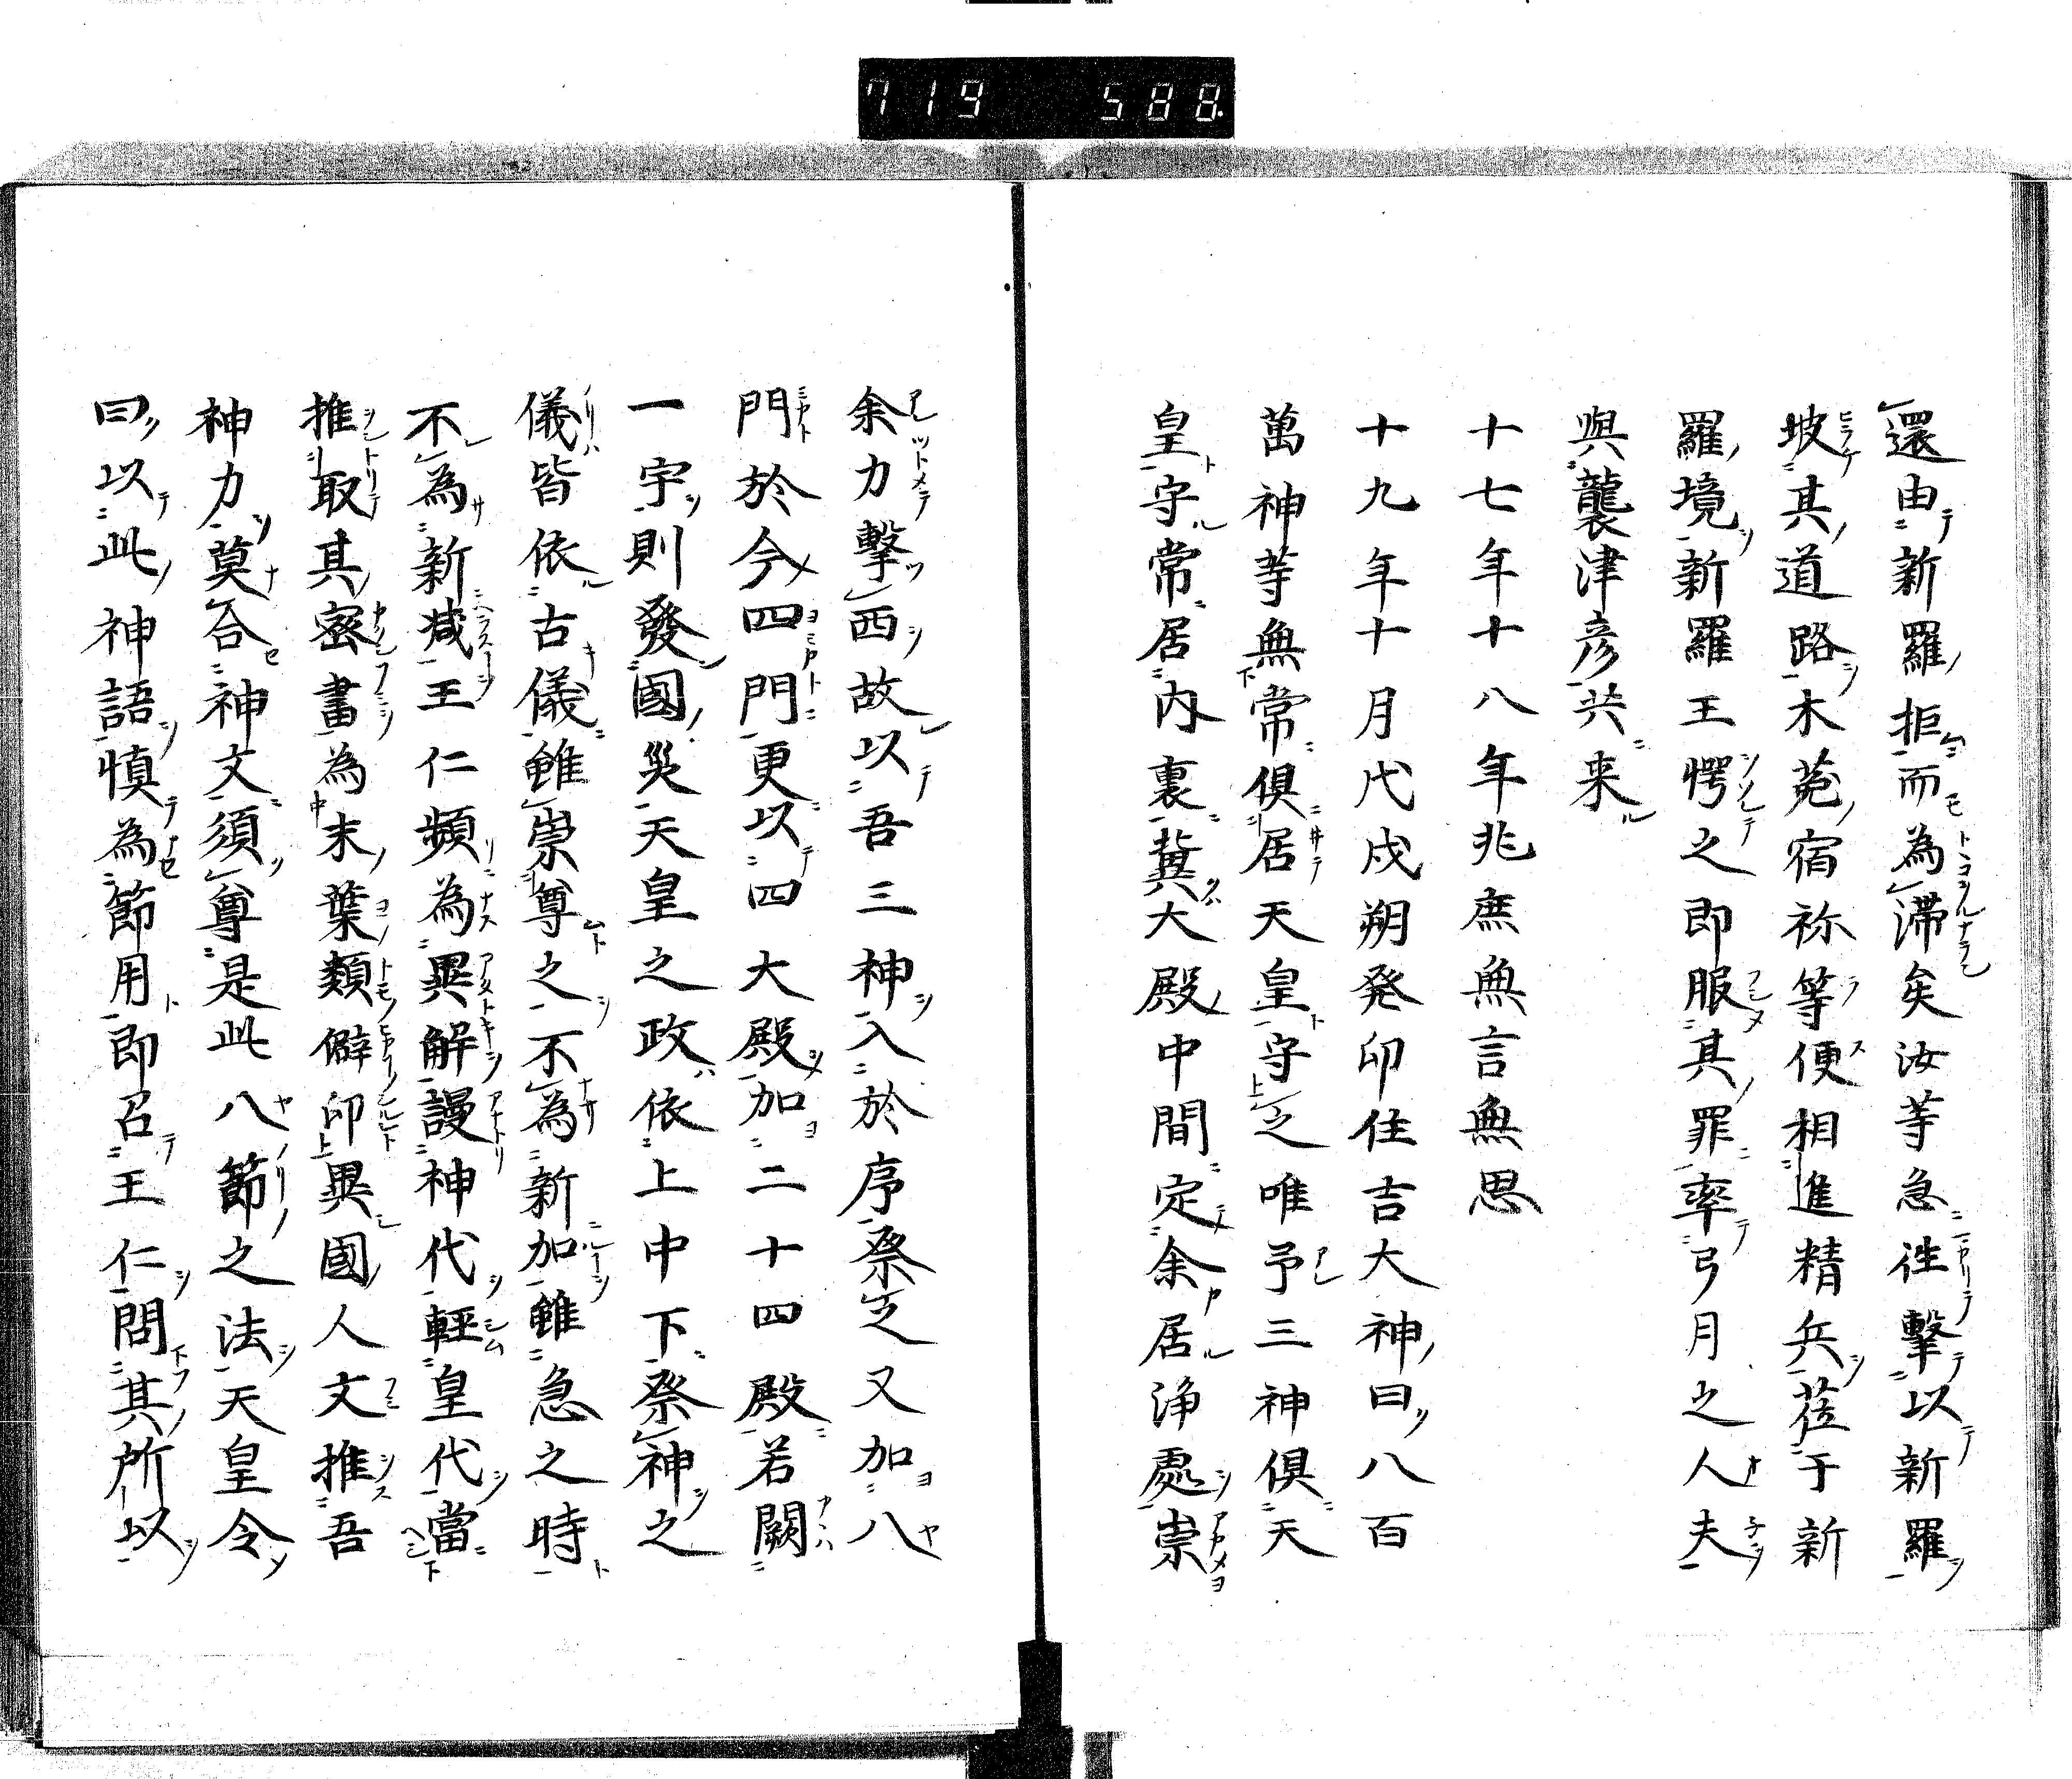 719 588
還由新羅拒而為滯矣汝等急往擊以新羅
坡其道路木菟宿祢等便相進精兵莅于新
羅境新羅王愕之即服其罪率弓月之人夫
與襲津彦共来
十七年十八年兆庶無言無思
十九年十月戊戌朔癸卯住吉大神曰八百
萬神等無常俱居天皇守之唯予三神俱天
皇守常居内裏冀大殿中間定余居浄處崇
余力擊西故以吾三神入於序祭之又加八
門於今四門更以四大殿加二十四殿若闕
一宇則發國災天皇之政依上中下祭神之
儀皆依古儀雖崇尊之不為新加雖急之時
不為新減王仁頻為異解謾神代輕皇代當
推取其密畫為末葉類僻印異國人文推吾
神力莫合神文須尊是此八節之法天皇令
曰以此神語慎為節用即召王仁問其所以